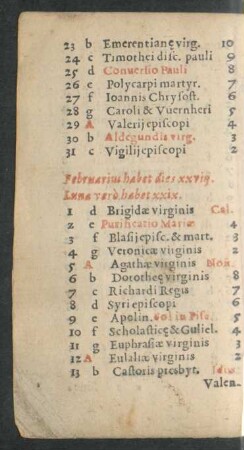 23 b Emerentianę virg. 10
24 c Timothei disc. pauli 9
25 d Conuersio Pauli 8
26 e Polycarpi martyr. 7
27 f Ioannis Chrysost. 6
28 g Caroli & Vuernheri 5
29 A Valerij episcopi 4
30 b Aldegundis virg. 3
31 c Vigilij episcopi 2
Februarius habet dies xxviij.
Luna verò habet xxix.
1 d Brigidæ virginis Cal.
2 e Purificatio Mariæ 4
3 f Blasij episc. & mart. 3
4 g Veronicæ virginis
5 A Agathæ virginis Non.
6 b Dorotheę virginis 8
7 c Richardi Regis 7
8 d Syri episcopi 6
9 e Apolin. Sol in Pisc. 5
10 f Scholasticę & Guliel. 4
11 g Euphrasiæ virgini 3
12 A Eulaliæ virginis 2
13 b Castoris presbyt. Idus
Valen-